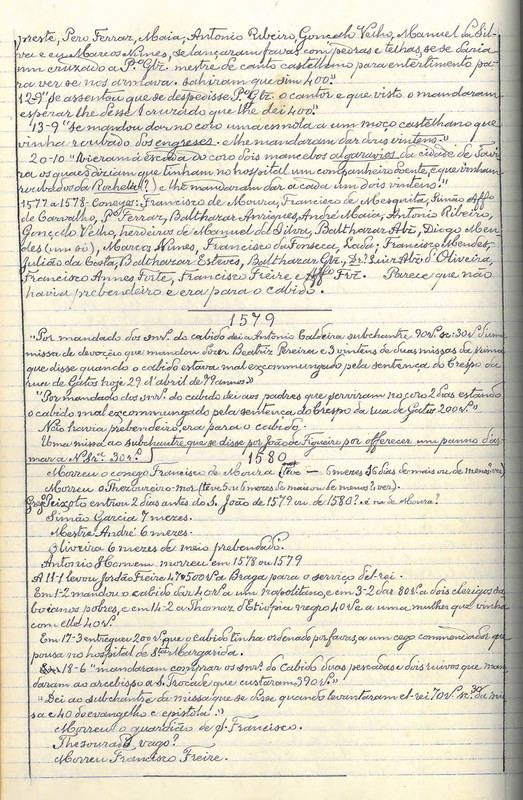 preste, Pero Ferraz, Maia, Antonio Ribeiro, Goncalo Velho, Manuel da Sil-
va e eu Marcos Nunes, se lançaram favas com pedras e telhas, se se daria
um cruzado a P.º Glz. mestre de canto castelhano para entertimento pa-
ra ver se nos armava. Sahiram que sim 400."
12-9 "Se assentou que se despedisse P.º Glz. o cantor e que visto o mandaram
esperar lhe désse 1 cruzado que lhe dei 400."
13-9 "Se mandou dar no coro uma esmola a um moço castelhano que
vinha roubado dos engreses. Me mandaram dar dois vintens."
20-10 "Vieram á escada do coro dois mancebos algaravios da cidade de Tavi-
ra os quaes diziam que tinham no hospital um companheiro doente, e que vinham
roubados da Rochella(?) e me mandaram dar a cada um dois vintens."
1577 a 1578- Conegos: Francisco de Moura, Francisco de Mesquita, Simão Aff.º
de Carvalho, P.º Ferraz, Balthazar Anriques, André Maia, Antonio Ribeiro,
Gonçalo Velho, herdeiros de Manuel da Silva, Balthazar Alz, Diogo Men-
des (um só), Marcos Nunes, Francisco da Fonseca, Lado, Francisco Mendes,
Julião da Costa, Balthazar Esteves, Balthazar Glz., Dr. Luiz Alz. d'Oliveira,
Francisco Annes Forte, Francisco Freire e Aff.º Frz. Parece que não
havia prebendeiro e era para o cabido.
1579
"Por mandado dos snr.s do cabido dei a Antonio Caldeira subchantre 90 r.s sc: 30 r.s d'uma
missa de devoção que mandou dizer Beatriz Pereira e 3 vintens de duas missas da
que disse quando o cabido estava mal excommungado pela sentença do Crespo da
rua de Gatos hoje 29 d'abril de 79 annos."
"Por mandado dos snr.s do cabido dei aos padres que serviram no coro 2 dias estando
o cabido mal excommungado pela sentença do Crespo da rua de Gatos 200 r.s"
Não havia prebendeiro, era para o cabido.
Uma missa ao subchantre que se disse por João de Figueiro por offerecer um panno d'ar-
mar a N. Sr.ª 30 r.s
1580
Morreu o conego Francisco de Moura (teve — 6 mezes 16 dias de mais ou de menos? ver)
Morreu o Thezoureiro-mór (teve 5 ou 6 mezes de mais ou de menos?, ver).
Peixoto entrou 2 dias antes do S. João de 1579 ou de 1580? é na de Moura?
Simão Garcia 7 mezes.
Mestre André 6 mezes.
Oliveira 6 mezes de meio prebendado.
Antonio Homem morreu em 1578 ou 1579
A 11-1 levou Jordão Freire 47$500 r.s a Braga para o serviço d'el-rei.
Em 1-2 mandou o cabido dar 40 r.s a um napolitano, e em 3-2 dar 80 r.s a dois clerigos sa-
boianos pobres, e em 14-2 a Thomaz d'Etiopia negro 40 r.s e a uma mulher que vinha
com elle 40 r.s
Em 17-3 entreguei 200 r.s que o cabido tinha ordenado por favas, a um cego commendador que
pousa no hospital de S.ta Margarida.
18-6 "mandaram comprar os snr.s do Cabido duas pescadas e dois ruivos que man-
daram ao arcebispo a S. Frocade que custaram 390 r.s"
"Dei ao subchantre da missa que se disse quando levantaram el-rei 70 r.s sc: 30 da mis-
sa e 40 de evangelho e epistola."
Morreu o guardião de S. Francisco.
Thesourado vago?
Morreu Francisco Freire.